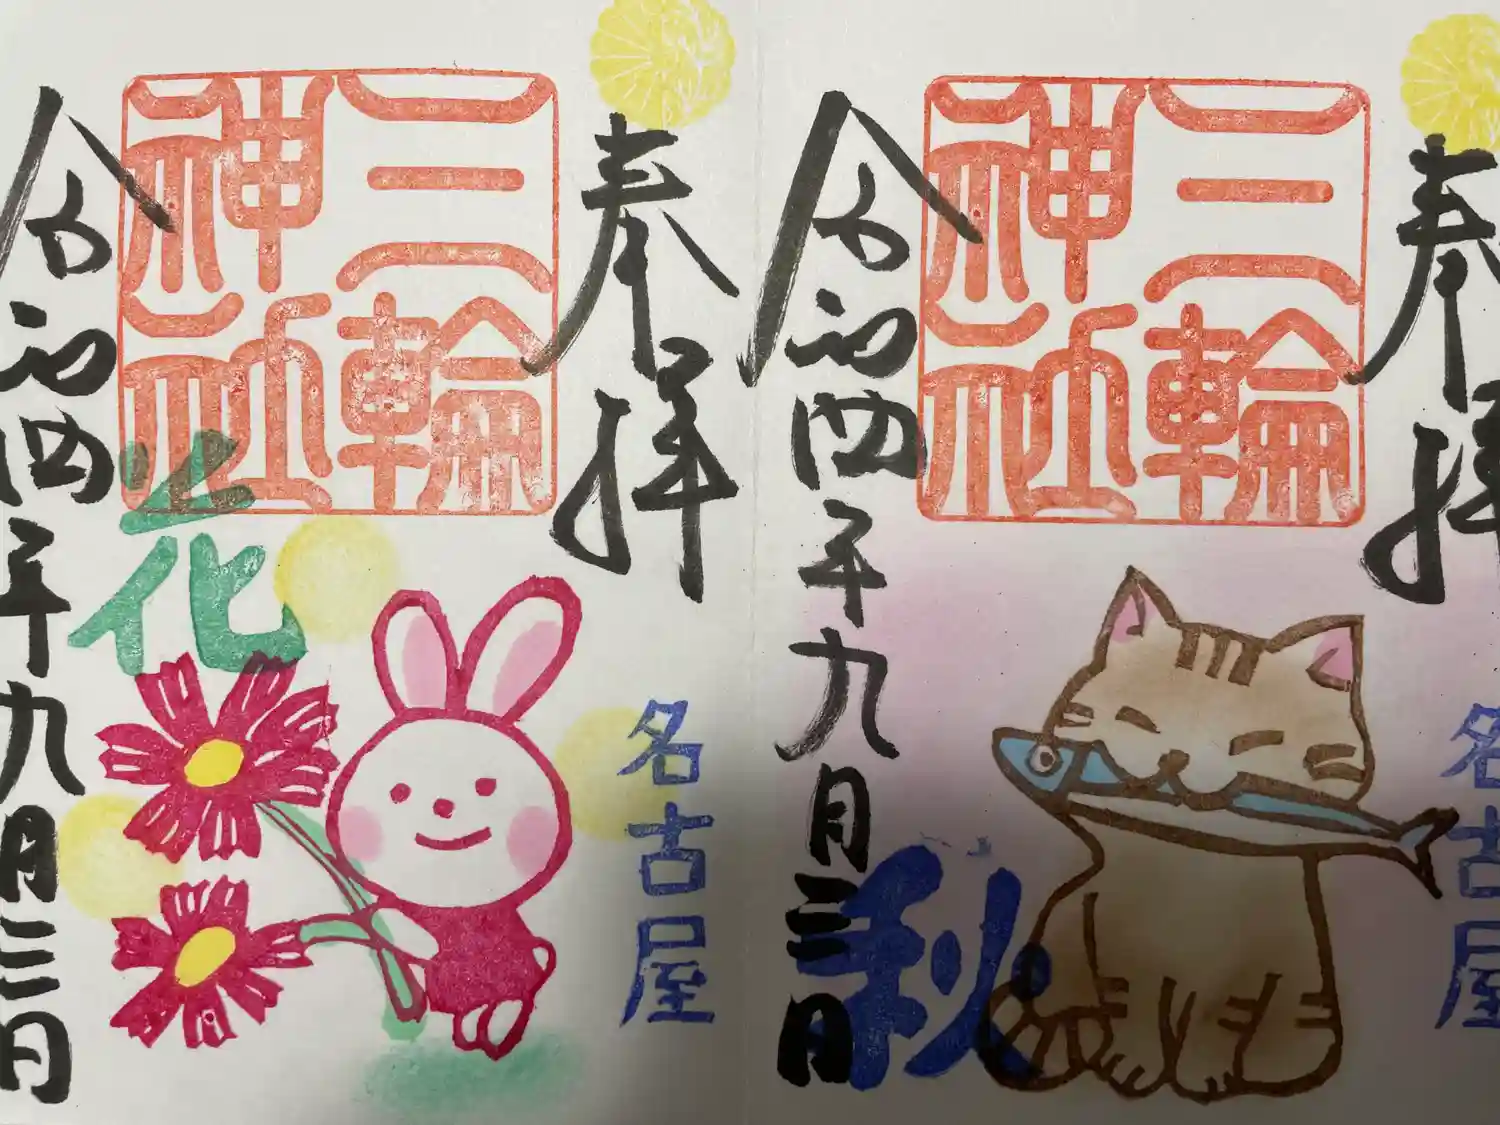 奉拝
三輪
神社
花
名古屋
令和四年九月三日
奉拝
三輪
神社
秋
名古屋
令和四年九月三日